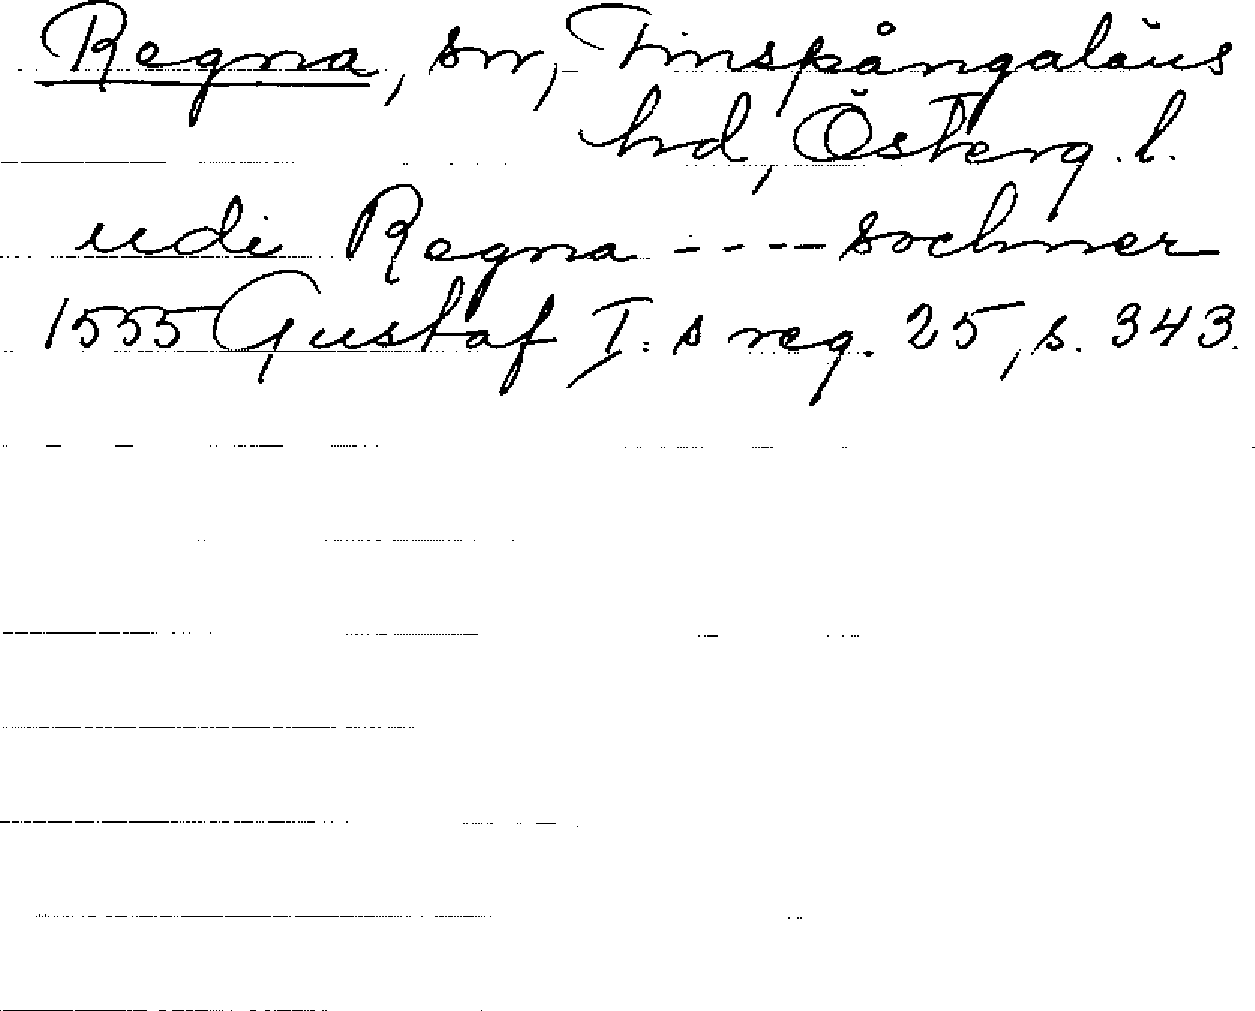 Regna, sn, Finspångaläns
hd, Österg. l.
udi Regna ---- sochner
1555 Gustaf I:s reg. 25, s. 343.